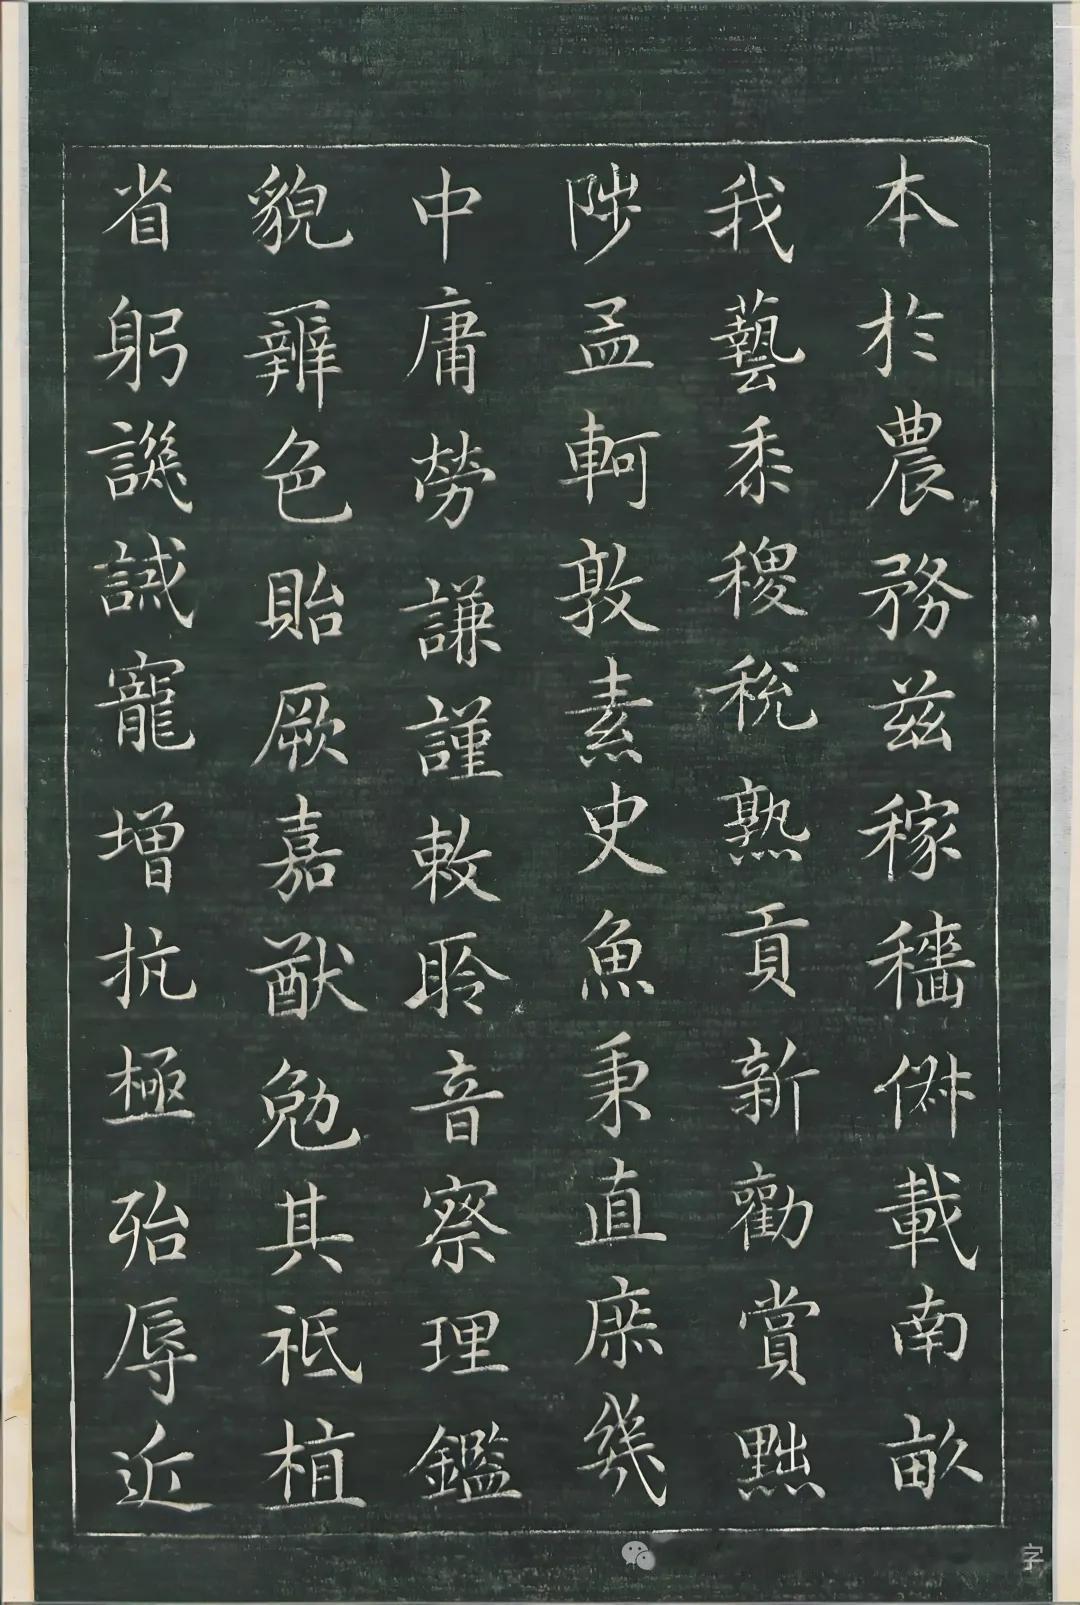 本於農務兹稼穡俶載南畝
我藝黍稷稅熟貢新勸賞黜
陟孟軻敦素史魚秉直庶幾
中庸勞謙謹敕聆音察理鑑
貌辨色貽厥嘉猷勉其祗植
省躬譏誡寵增抗極殆辱近
字